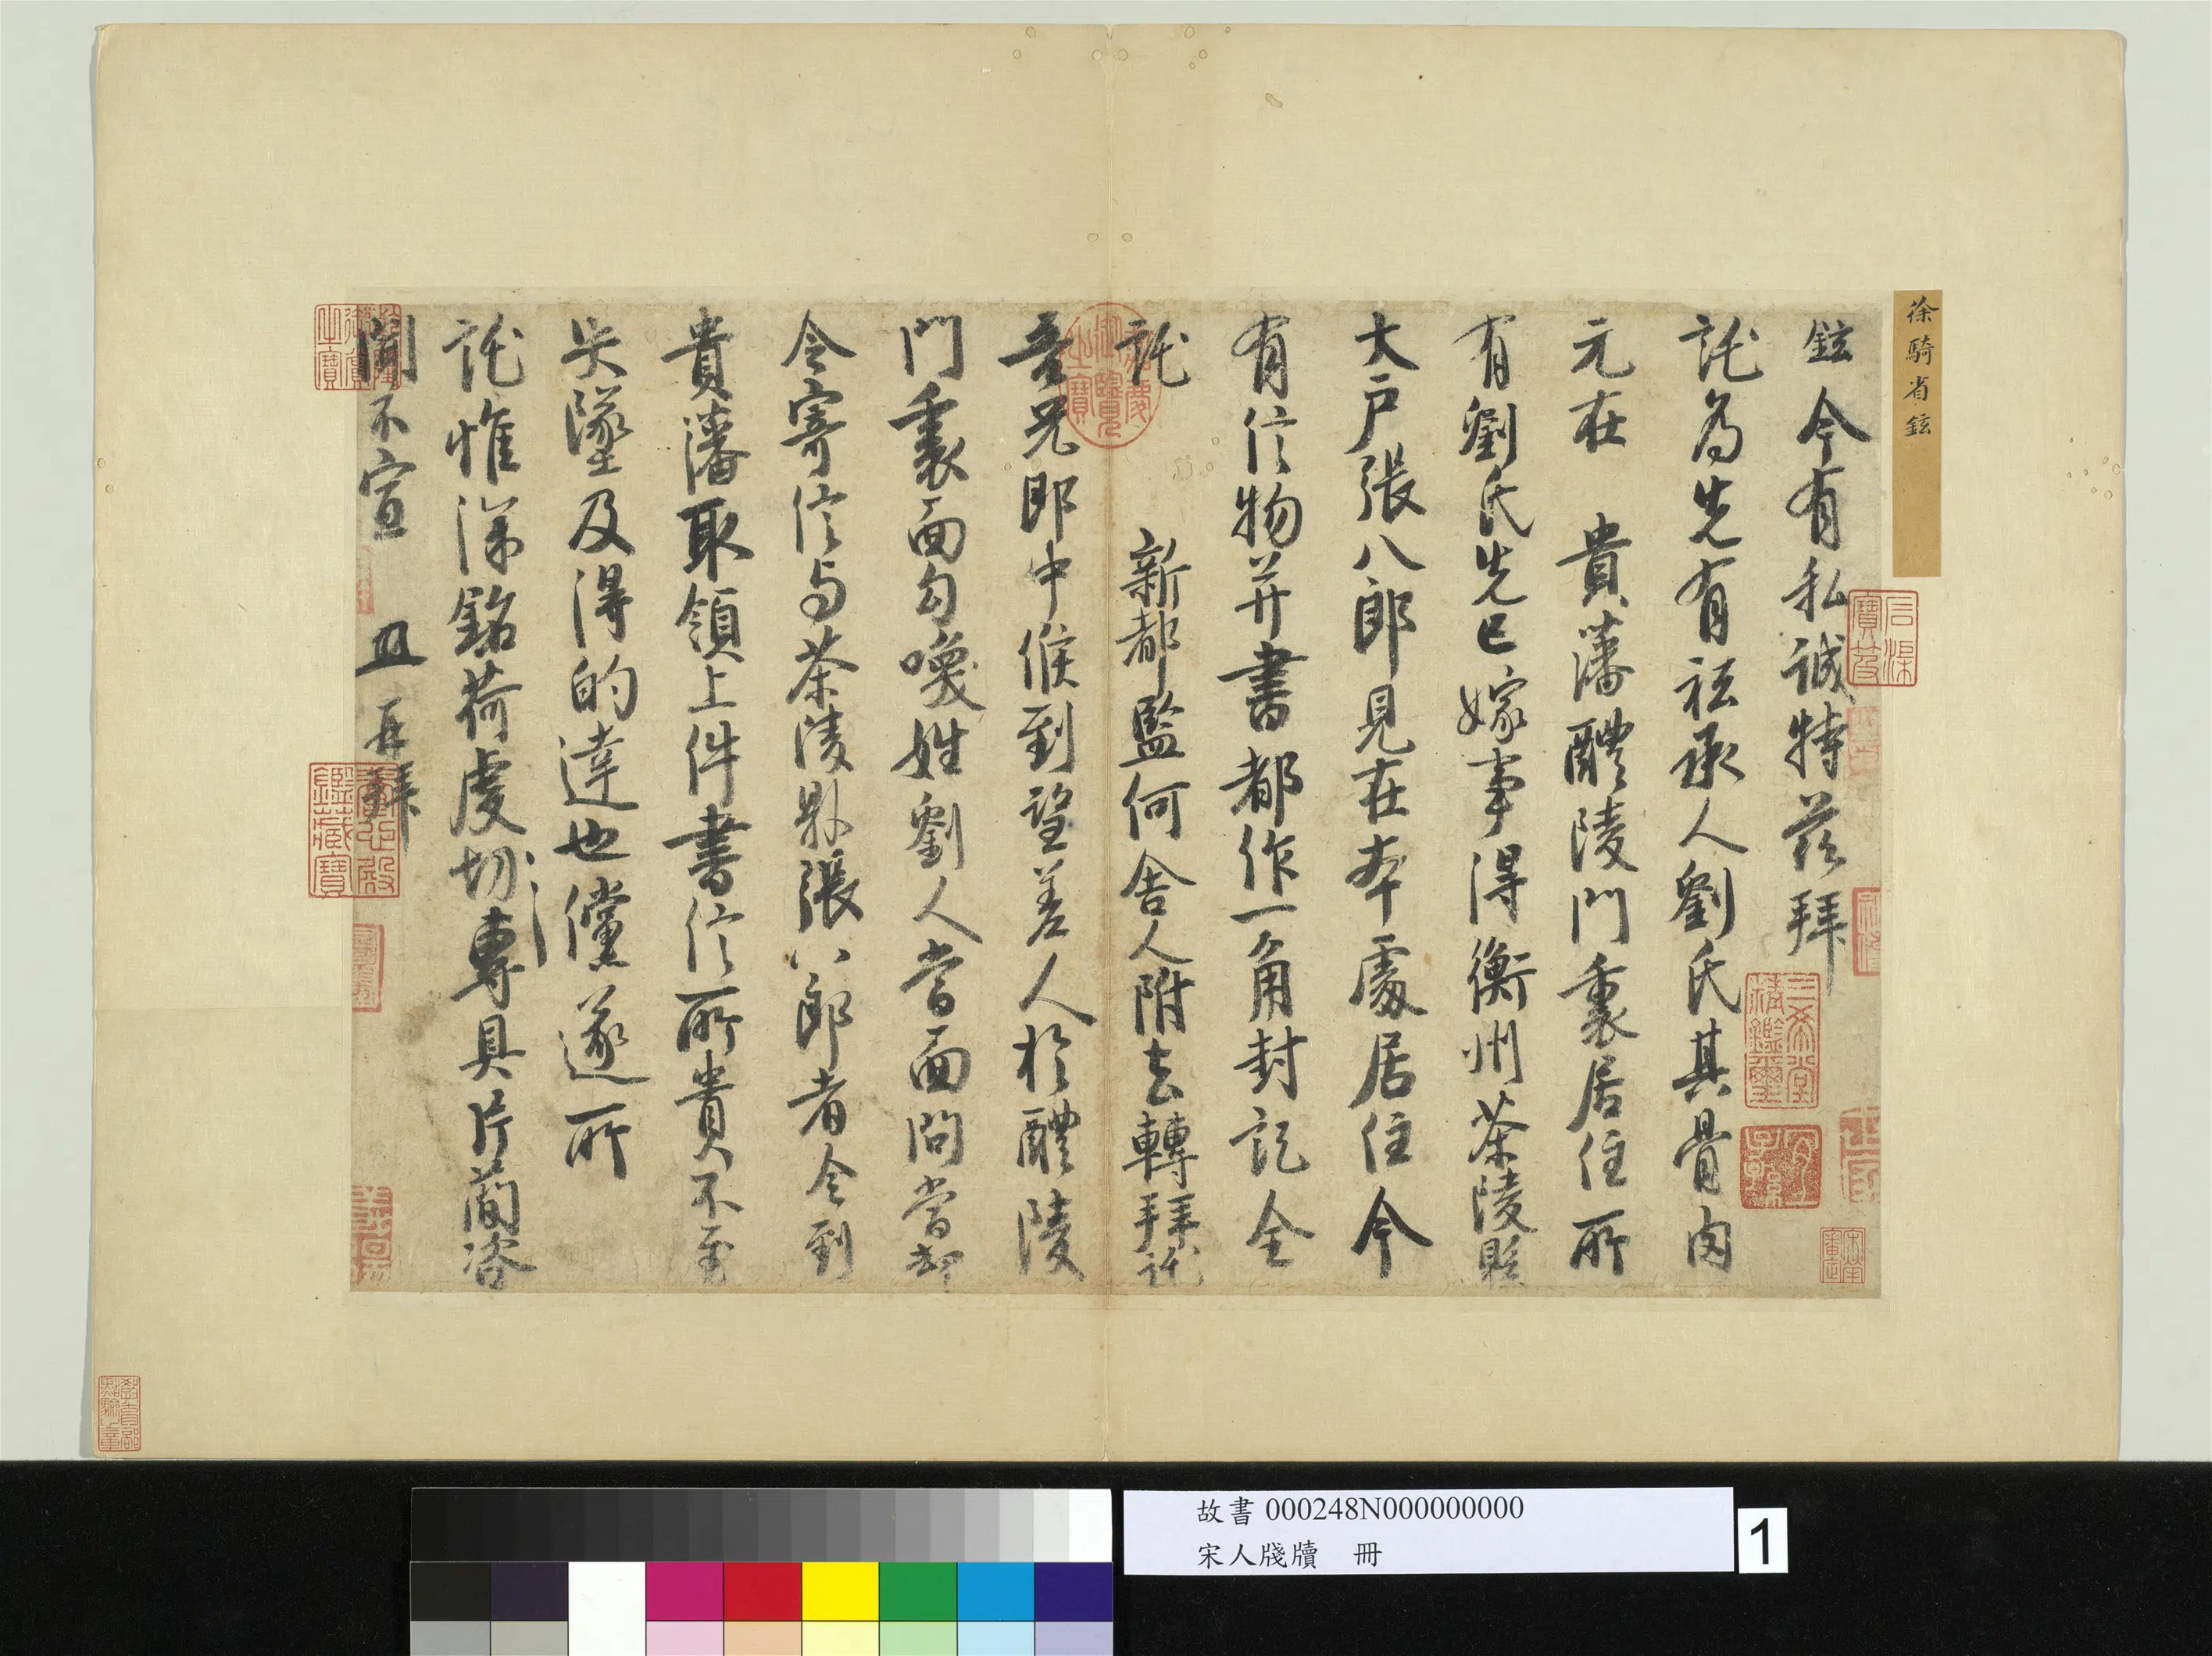 徐騎省鉉
鉉今有私誠特茲拜
託為先有祗承人劉氏其骨肉
元在 貴藩醴陵門裏居住所
有劉氏先已嫁事得衡州茶陵縣
大戶張八郎見在本處居住今
有信物并書都作一角封訖全
託 新都監何舍人附去轉拜託
吾兄郎中候到望差人於醴陵
門裏面勾喚姓劉人當面問當却
令寄信与茶陵縣張八郎者令到
貴藩取領上件書信所貴不至
失墜及得的達也儻遂所
託惟深銘荷虔切專具片簡咨
聞不宣 再拜
三希堂精鑑璽
宜子孫
嘉慶御覽之寶
石渠寶笈
故書 000248N000000000
宋人牋牘 冊
1